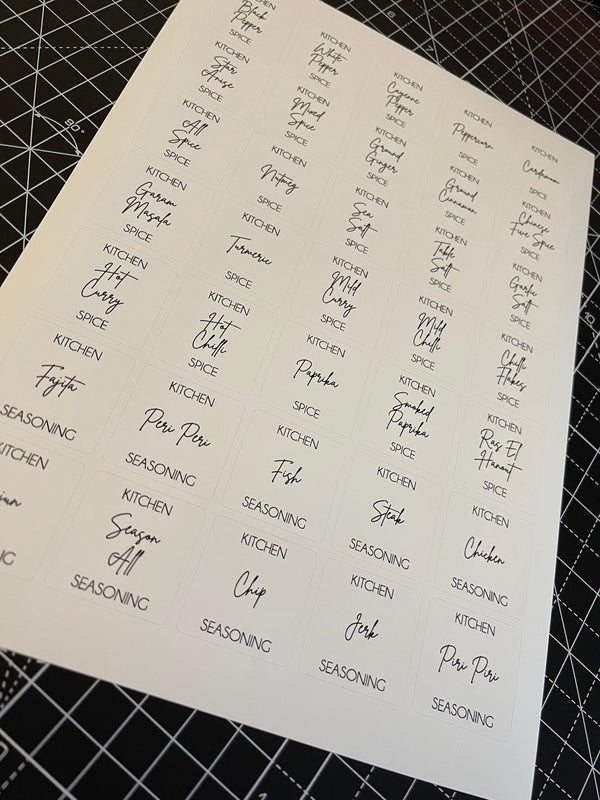 CHEN
Black
Pepper
SPICE
KITCHEN
White
Pepper
SPICE
KITCHEN
Cayenne
Pepper
SPICE
KITCHEN
Peppercorn
SPICE
KITCHEN
Cardamom
SPICE
KITCHEN
Star
Anise
SPICE
KITCHEN
Mixed
Spice
SPICE
KITCHEN
Ground
Ginger
SPICE
KITCHEN
Ground
Cinnamon
SPICE
KITCHEN
Chinese
Five Spice
SPICE
KITCHEN
All
Spice
SPICE
KITCHEN
Nutmeg
SPICE
KITCHEN
Sea
Salt
SPICE
KITCHEN
Table
Salt
SPICE
KITCHEN
Garlic
Salt
SPICE
KITCHEN
Garam
Masala
SPICE
KITCHEN
Turmeric
SPICE
KITCHEN
Mild
Curry
SPICE
KITCHEN
Mild
Chilli
SPICE
KITCHEN
Chilli
Flakes
SPICE
KITCHEN
Hot
Curry
SPICE
KITCHEN
Hot
Chilli
SPICE
KITCHEN
Paprika
SPICE
KITCHEN
Smoked
Paprika
SPICE
KITCHEN
Ras El
Hanout
SPICE
KITCHEN
Fajita
SEASONING
KITCHEN
Peri Peri
SEASONING
KITCHEN
Fish
SEASONING
KITCHEN
Steak
SEASONING
KITCHEN
Chicken
SEASONING
ITCHEN
KITCHEN
Season
All
SEASONING
KITCHEN
Chip
SEASONING
KITCHEN
Jerk
SEASONING
KITCHEN
Piri Piri
SEASONING